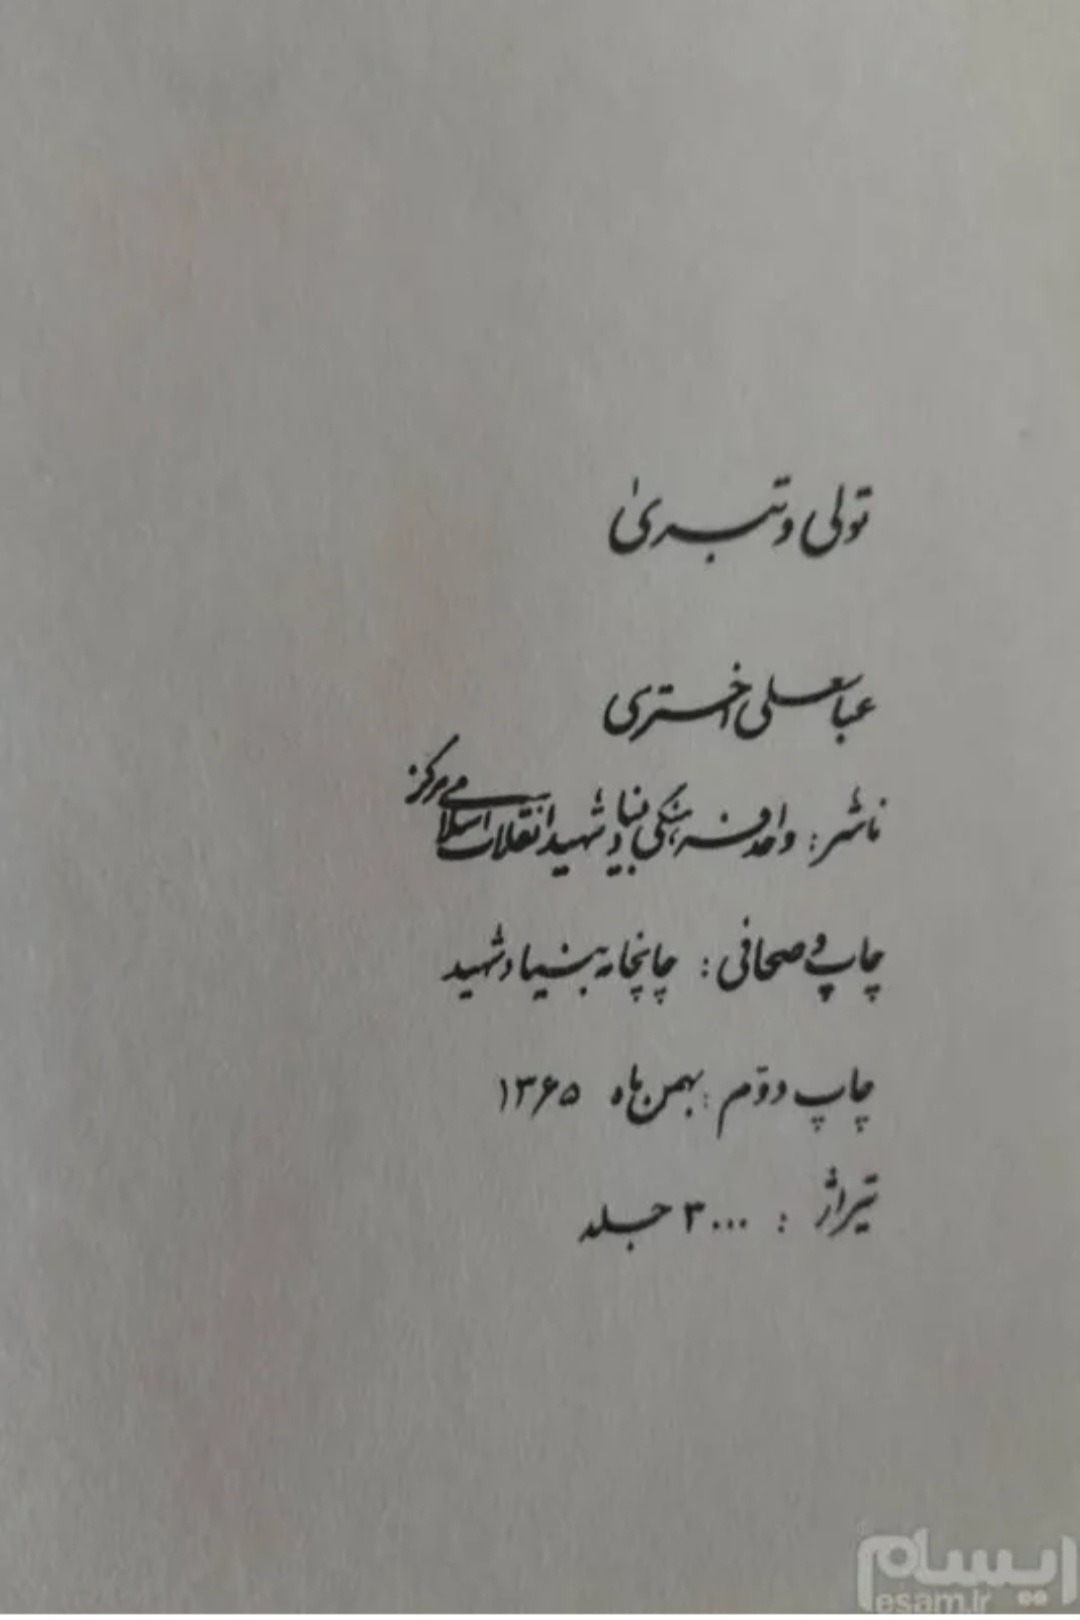 تولی و تبریٰ
عباسعلی اختری
ناشر: واحد فرهنگی بنیاد شهید انقلاب اسلامی مرکز
چاپ و صحافی: چاپخانه بنیاد شهید
چاپ دوّم: بهمن ماه ۱۳۶۵
تیراژ: ۳۰۰۰ جلد
ایسام
esam.ir